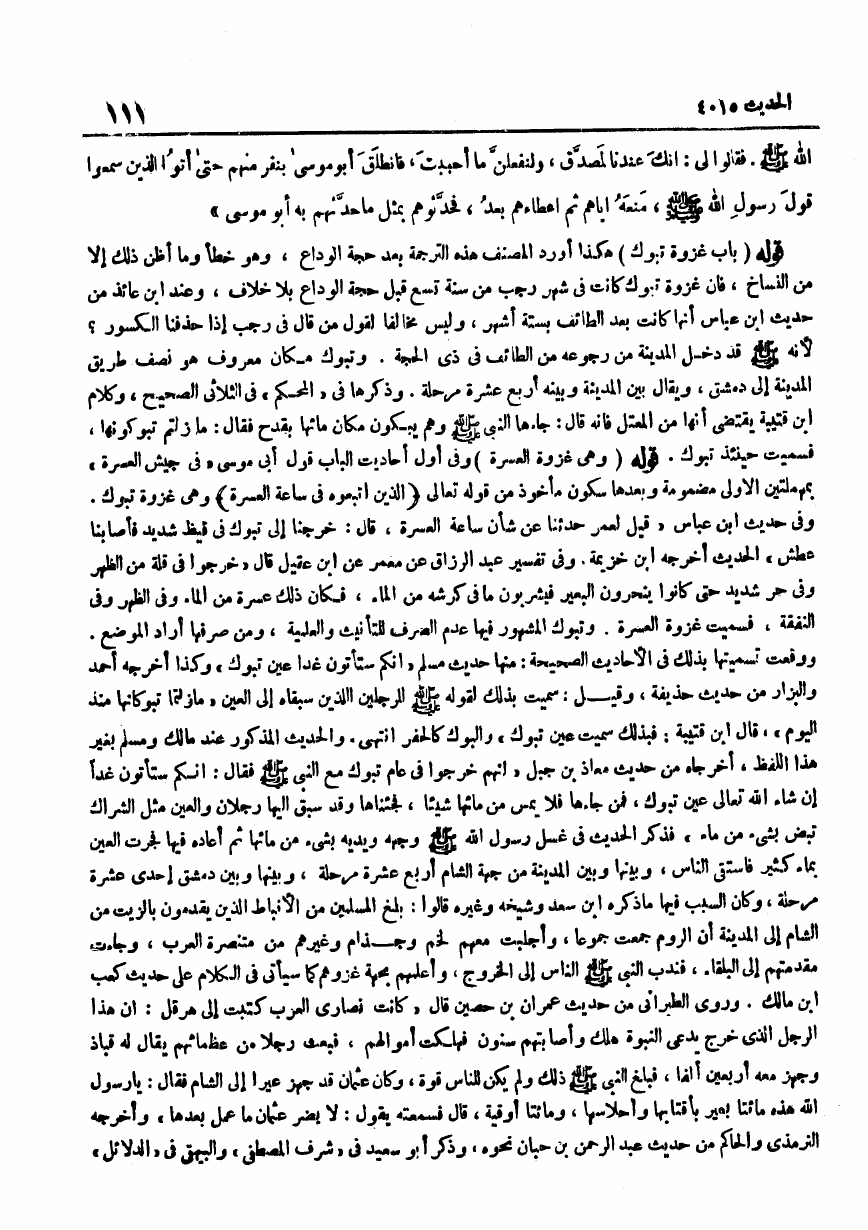 الحديث ٤٠١٥
١١١
الله ﷺ . فقالوا لى : انكَ عندنا لَمصدَّق ، ولنفعلنَّ ما أحببتَ ، فانطلَقَ أبو موسىٰ بنفر منهم حتىٰ أتوُا الذين سمعوا
قولَ رسولِ الله ﷺ ، مَنعَهُ اياهم ثم اعطاءهم بعدُ ، فحدَّثوهم بمثل ما حدَّثهم به أبو موسى »
قوله ( باب غزوة تبوك ) هكذا أورد المصنف هذه الترجمة بعد حجة الوداع ، وهو خطأ وما أظن ذلك إلا
من النساخ ، فان غزوة تبوك كانت فى شهر رجب من سنة تسع قبل حجة الوداع بلا خلاف ، وعند ابن عائذ من
حديث ابن عباس أنها كانت بعد الطائف بستة أشهر ، وليس مخالفا لقول من قال فى رجب إذا حذفنا الكسور ؟
لأنه ﷺ قد دخل المدينة من رجوعه من الطائف فى ذى الحجة . وتبوك مكان معروف هو نصف طريق
المدينة إلى دمشق ، ويقال بين المدينة وبينه أربع عشرة مرحلة . وذكرها فى « المحكم » فى الثلاثى الصحيح ، وكلام
ابن قتيبة يقتضى أنها من المعتل فانه قال : جاءها النبى ﷺ وهم يبكون مكان مائها بقدح فقال : ما زلتم تبوكونها ،
فسميت حينئذ تبوك . قوله ( وهى غزوة العسرة ) وفى أول أحاديث الباب قول أبى موسى « فى جيش العسرة »
بمهملتين الاولى مضمومة وبعدها سكون مأخوذ من قوله تعالى ﴿ الذين اتبعوه فى ساعة العسرة ﴾ وهى غزوة تبوك .
وفى حديث ابن عباس « قيل لعمر حدثنا عن شأن ساعة العسرة ، قال : خرجنا إلى تبوك فى قيظ شديد فأصابنا
عطش » الحديث أخرجه ابن خزيمة . وفى تفسير عبد الرزاق عن معمر عن ابن عقيل قال « خرجوا فى قلة من الظهر
وفى حر شديد حتى كانوا ينحرون البعير فيشربون ما فى كرشه من الماء ، فكان ذلك عسرة من الماء وفى الظهر وفى
النفقة ، فسميت غزوة العسرة . وتبوك المشهور فيها عدم الصرف للتأنيث والعلمية ، ومن صرفها أراد الموضع .
ووقعت تسميتها بذلك فى الأحاديث الصحيحة : منها حديث مسلم « انكم ستأتون غدا عين تبوك » وكذا أخرجه أحمد
والبزار من حديث حذيفة ، وقيل : سميت بذلك لقوله ﷺ للرجلين اللذين سبقاه إلى العين « مازلتما تبوكانها منذ
اليوم » ، قال ابن قتيبة : فبذلك سميت عين تبوك » والبوك كالحفر انتهى . والحديث المذكور عند مالك ومسلم بغير
هذا اللفظ ، أخرجاه من حديث معاذ بن جبل « انهم خرجوا فى عام تبوك مع النبى ﷺ فقال : انكم ستأتون غداً
إن شاء الله تعالى عين تبوك ، فمن جاءها فلا يمس من مائها شيئا ، فجئناها وقد سبق اليها رجلان والعين مثل الشراك
تبض بشىء من ماء » فذكر الحديث فى غسل رسول الله ﷺ وجهه ويديه بشىء من مائها ثم أعاده فيها فجرت العين
بماء كثير فاستقى الناس ، وبينها وبين المدينة من جهة الشام أربع عشرة مرحلة ، وبينها وبين دمشق إحدى عشرة
مرحلة ، وكان السبب فيها ما ذكره ابن سعد وشيخه وغيره قالوا : بلغ المسلمين من الأنباط الذين يقدمون بالزيت من
الشام إلى المدينة أن الروم جمعت جموعا ، وأجلبت معهم لخم وجذام وغيرهم من متنصرة العرب ، وجاءت
مقدمتهم إلى البلقاء ، فندب النبى ﷺ الناس إلى الخروج ، وأعلمهم بجهة غزوهم كما سيأتى فى الكلام على حديث كعب
ابن مالك . وروى الطبرانى من حديث عمران بن حصين قال « كانت نصارى العرب كتبت إلى هرقل : ان هذا
الرجل الذى خرج يدعى النبوة هلك وأصابتهم سنون فهلكت أموالهم ، فبعث رجلا من عظمائهم يقال له قباذ
وجهز معه أربعين ألفا ، فبلغ النبى ﷺ ذلك ولم يكن للناس قوة ، وكان عثمان قد جهز عيرا إلى الشام فقال : يارسول
الله هذه مائتا بعير بأقتابها وأحلاسها ، ومائتا أوقية ، قال فسمعته يقول : لا يضر عثمان ما عمل بعدها » وأخرجه
الترمذى والحاكم من حديث عبد الرحمن بن حبان نحوه ، وذكر أبو سعيد فى « شرف المصطفى » والبيهقى فى « الدلائل »